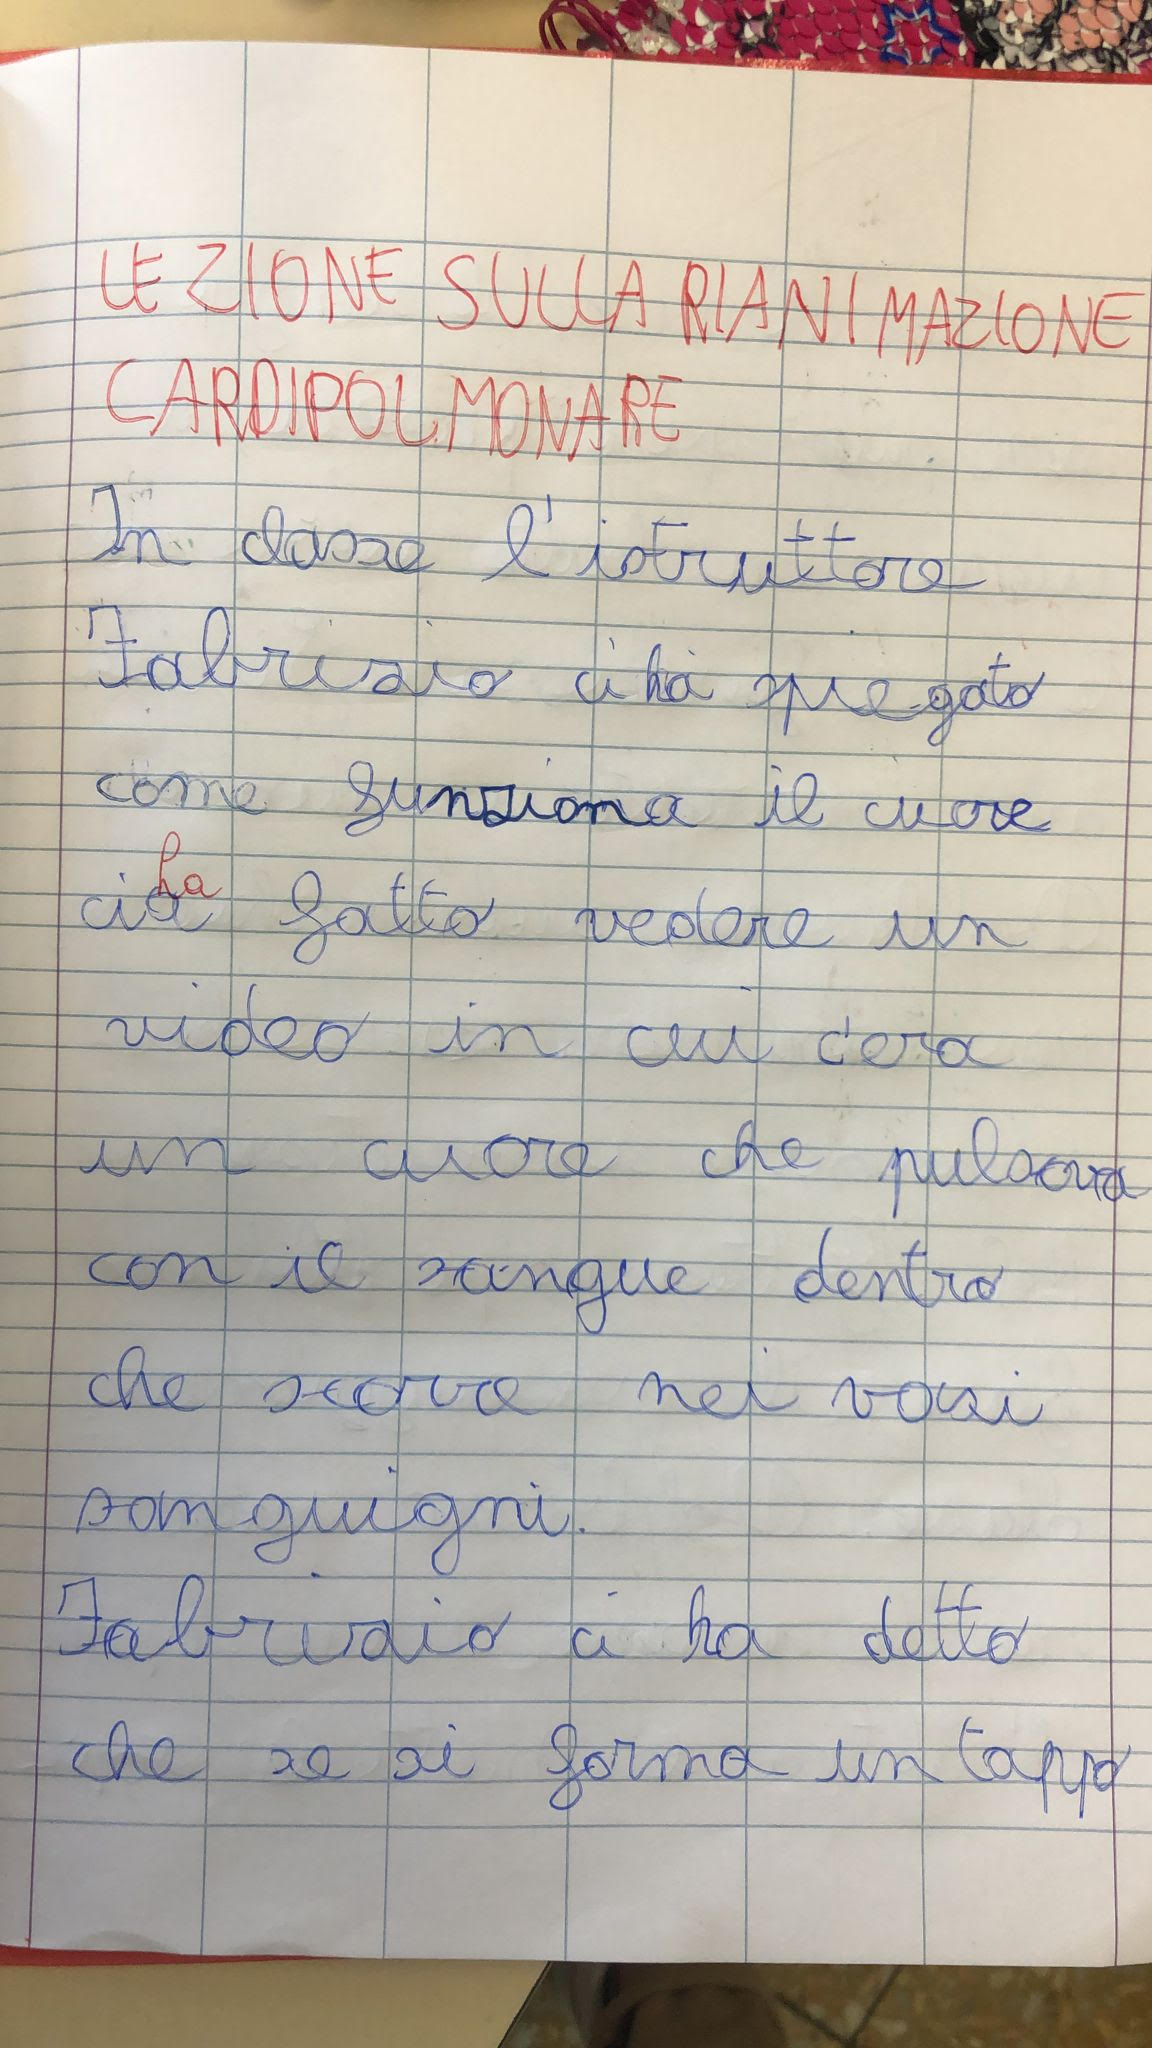 LEZIONE SULLA RIANIMAZIONE
CARDIPOLMONARE
In classe l'istruttore
Fabrizio ci ha spiegato
come funziona il cuore
ha
ci a fatto vedere un
video in cui c'era
un cuore che pulsava
con il sangue dentro
che scorre nei vasi
sanguigni.
Fabrizio ci ha detto
che se si forma un tappo